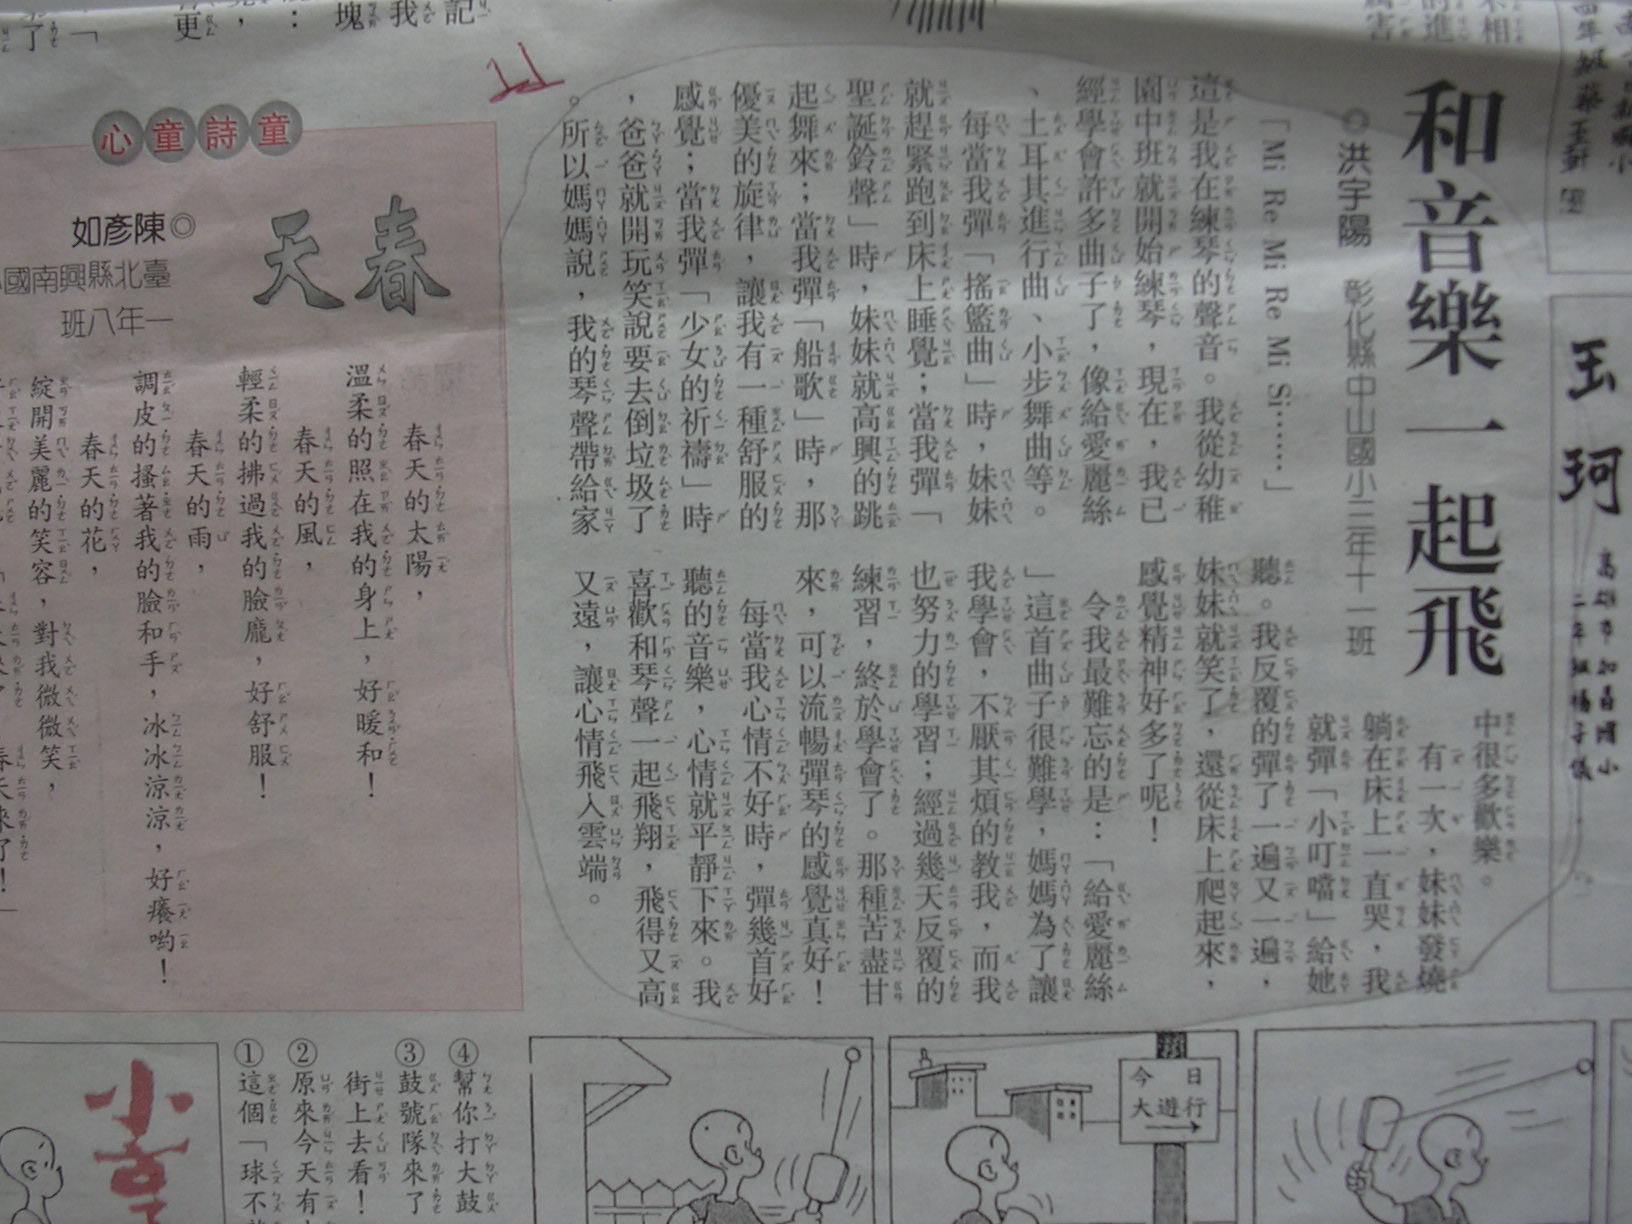 和音樂一起飛
◎洪宇陽　彰化縣中山國小三年十一班
「Mi Re Mi Re Mi Si……」
這是我在練琴的聲音。我從幼稚
園中班就開始練琴，現在，我已
經學會許多曲子了，像給愛麗絲
、土耳其進行曲、小步舞曲等。
每當我彈「搖籃曲」時，妹妹
就趕緊跑到床上睡覺；當我彈「
聖誕鈴聲」時，妹妹就高興的跳
起舞來；當我彈「船歌」時，那
優美的旋律，讓我有一種舒服的
感覺；當我彈「少女的祈禱」時
，爸爸就開玩笑說要去倒垃圾了
。所以媽媽說，我的琴聲帶給家
中很多歡樂。
有一次，妹妹發燒
躺在床上一直哭，我
就彈「小叮噹」給她
聽。我反覆的彈了一遍又一遍，
妹妹就笑了，還從床上爬起來，
感覺精神好多了呢！
令我最難忘的是：「給愛麗絲
」這首曲子很難學，媽媽為了讓
我學會，不厭其煩的教我，而我
也努力的學習；經過幾天反覆的
練習，終於學會了。那種苦盡甘
來，可以流暢彈琴的感覺真好！
每當我心情不好時，彈幾首好
聽的音樂，心情就平靜下來。我
喜歡和琴聲一起飛翔，飛得又高
又遠，讓心情飛入雲端。
童詩童心
春天
◎陳彥如
臺北縣興南國
一年八班
春天的太陽，
溫柔的照在我的身上，好暖和！
春天的風，
輕柔的拂過我的臉龐，好舒服！
春天的雨，
調皮的搔著我的臉和手，冰冰涼涼，好癢喲！
春天的花，
綻開美麗的笑容，對我微微笑，
春天來了！
玉珂
今日
大遊行
④幫你打大鼓
③鼓號隊來了
街上去看！
②原來今天有
①這個「球不
小
記
我
塊
更
了